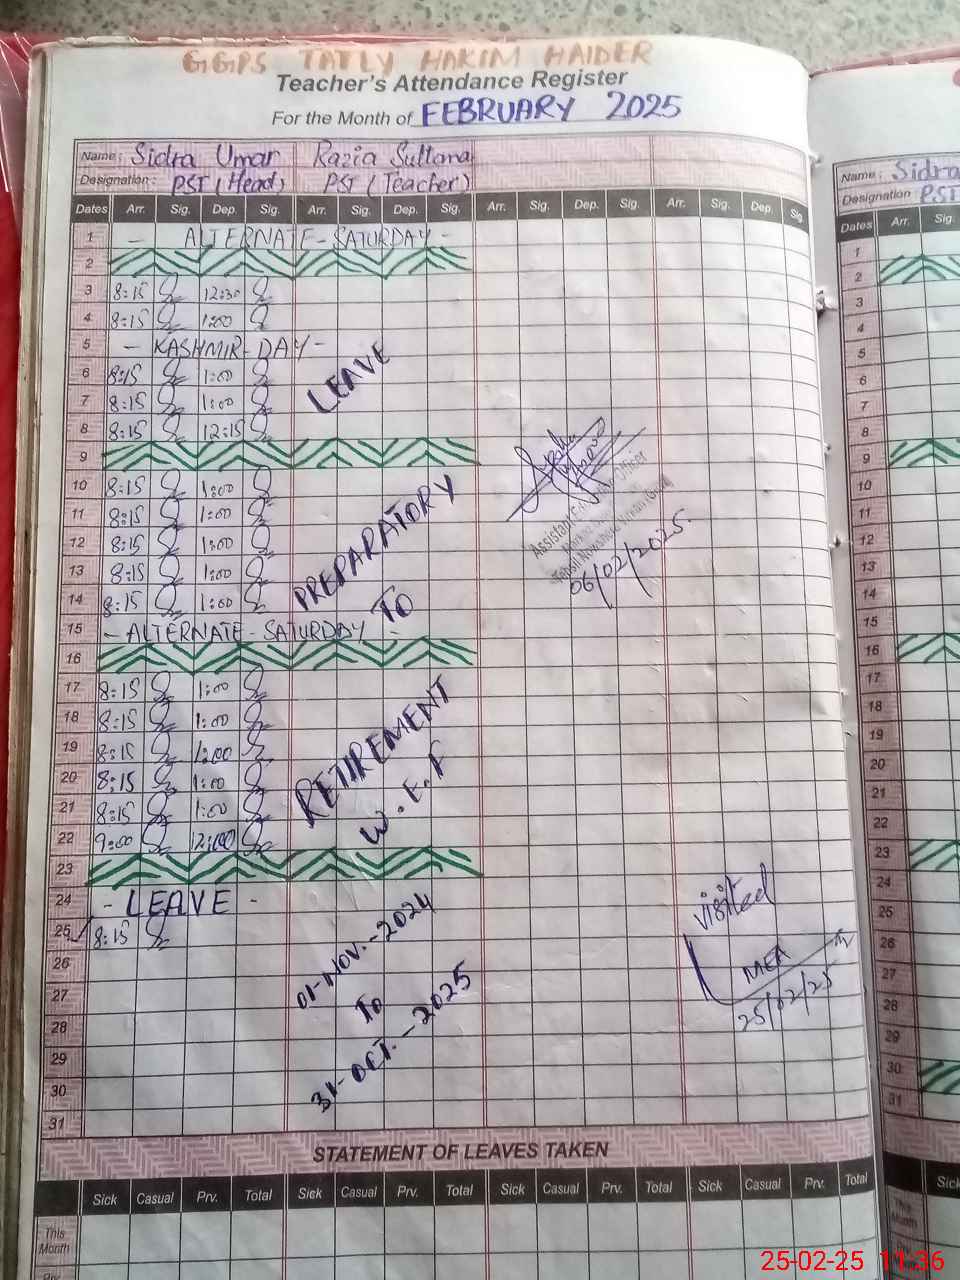 GGPS TATLY HAKIM HAIDER
Teacher's Attendance Register
For the Month of FEBRUARY 2025
Name: Sidra Umar Razia Sultana
Designation: PST (Head) PST (Teacher)
Dates Arr. Sig. Dep. Sig. Arr. Sig. Dep. Sig. Arr. Sig. Dep. Sig. Arr. Sig. Dep. Sig.
1 - ALTERNATE - SATURDAY -
2
3 8:15 12:30
4 8:15 1:00
5 - KASHMIR - DAY -
6 8:15 1:00
7 8:15 1:00
8 8:15 12:15
9
10 8:15 1:00
11 8:15 1:00
12 8:15 1:00
13 8:15 1:00
14 8:15 1:00
15 - ALTERNATE - SATURDAY -
16
17 8:15 1:00
18 8:15 1:00
19 8:15 1:00
20 8:15 1:00
21 8:15 1:00
22 9:00 12:00
23
24 - LEAVE -
25 8:15
26
27
28
29
30
31
LEAVE
PREPARATORY
TO
RETIREMENT
W.E.F
01-NOV.-2024
To
31-OCT.-2025
Assistant
Officer
06/02/2025.
visited
MEA
25/02/25
STATEMENT OF LEAVES TAKEN
Sick Casual Prv. Total Sick Casual Prv. Total Sick Casual Prv. Total Sick Casual Prv. Total
This Month
Name: Sidra
Designation PST
Dates Arr. Sig.
1
2
3
4
5
6
7
8
9
10
11
12
13
14
15
16
17
18
19
20
21
22
23
24
25
26
27
28
29
30
31
Sick
This Month
Prv.
25-02-25 11:36